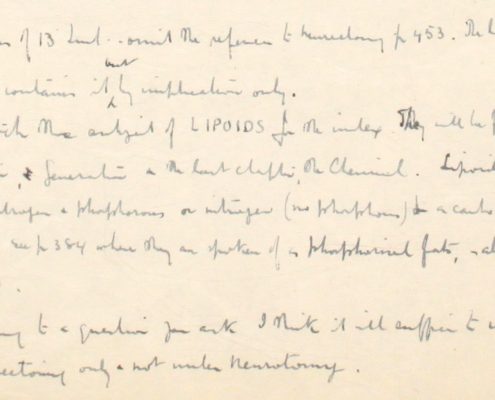 of 13 omit the reference to Neurectomy p 453. The
contains it but by implication only.
the subject of LIPOIDS for the index. They will be
& Generation & the last chapter, the Chemical. Lipoid
phosphorous or nitrogen (no phosphorus) & a
see p 384 where they are spoken of as phosphorised fats,
to a question you ask I think it will suffice to
only & not under Neurotomy.